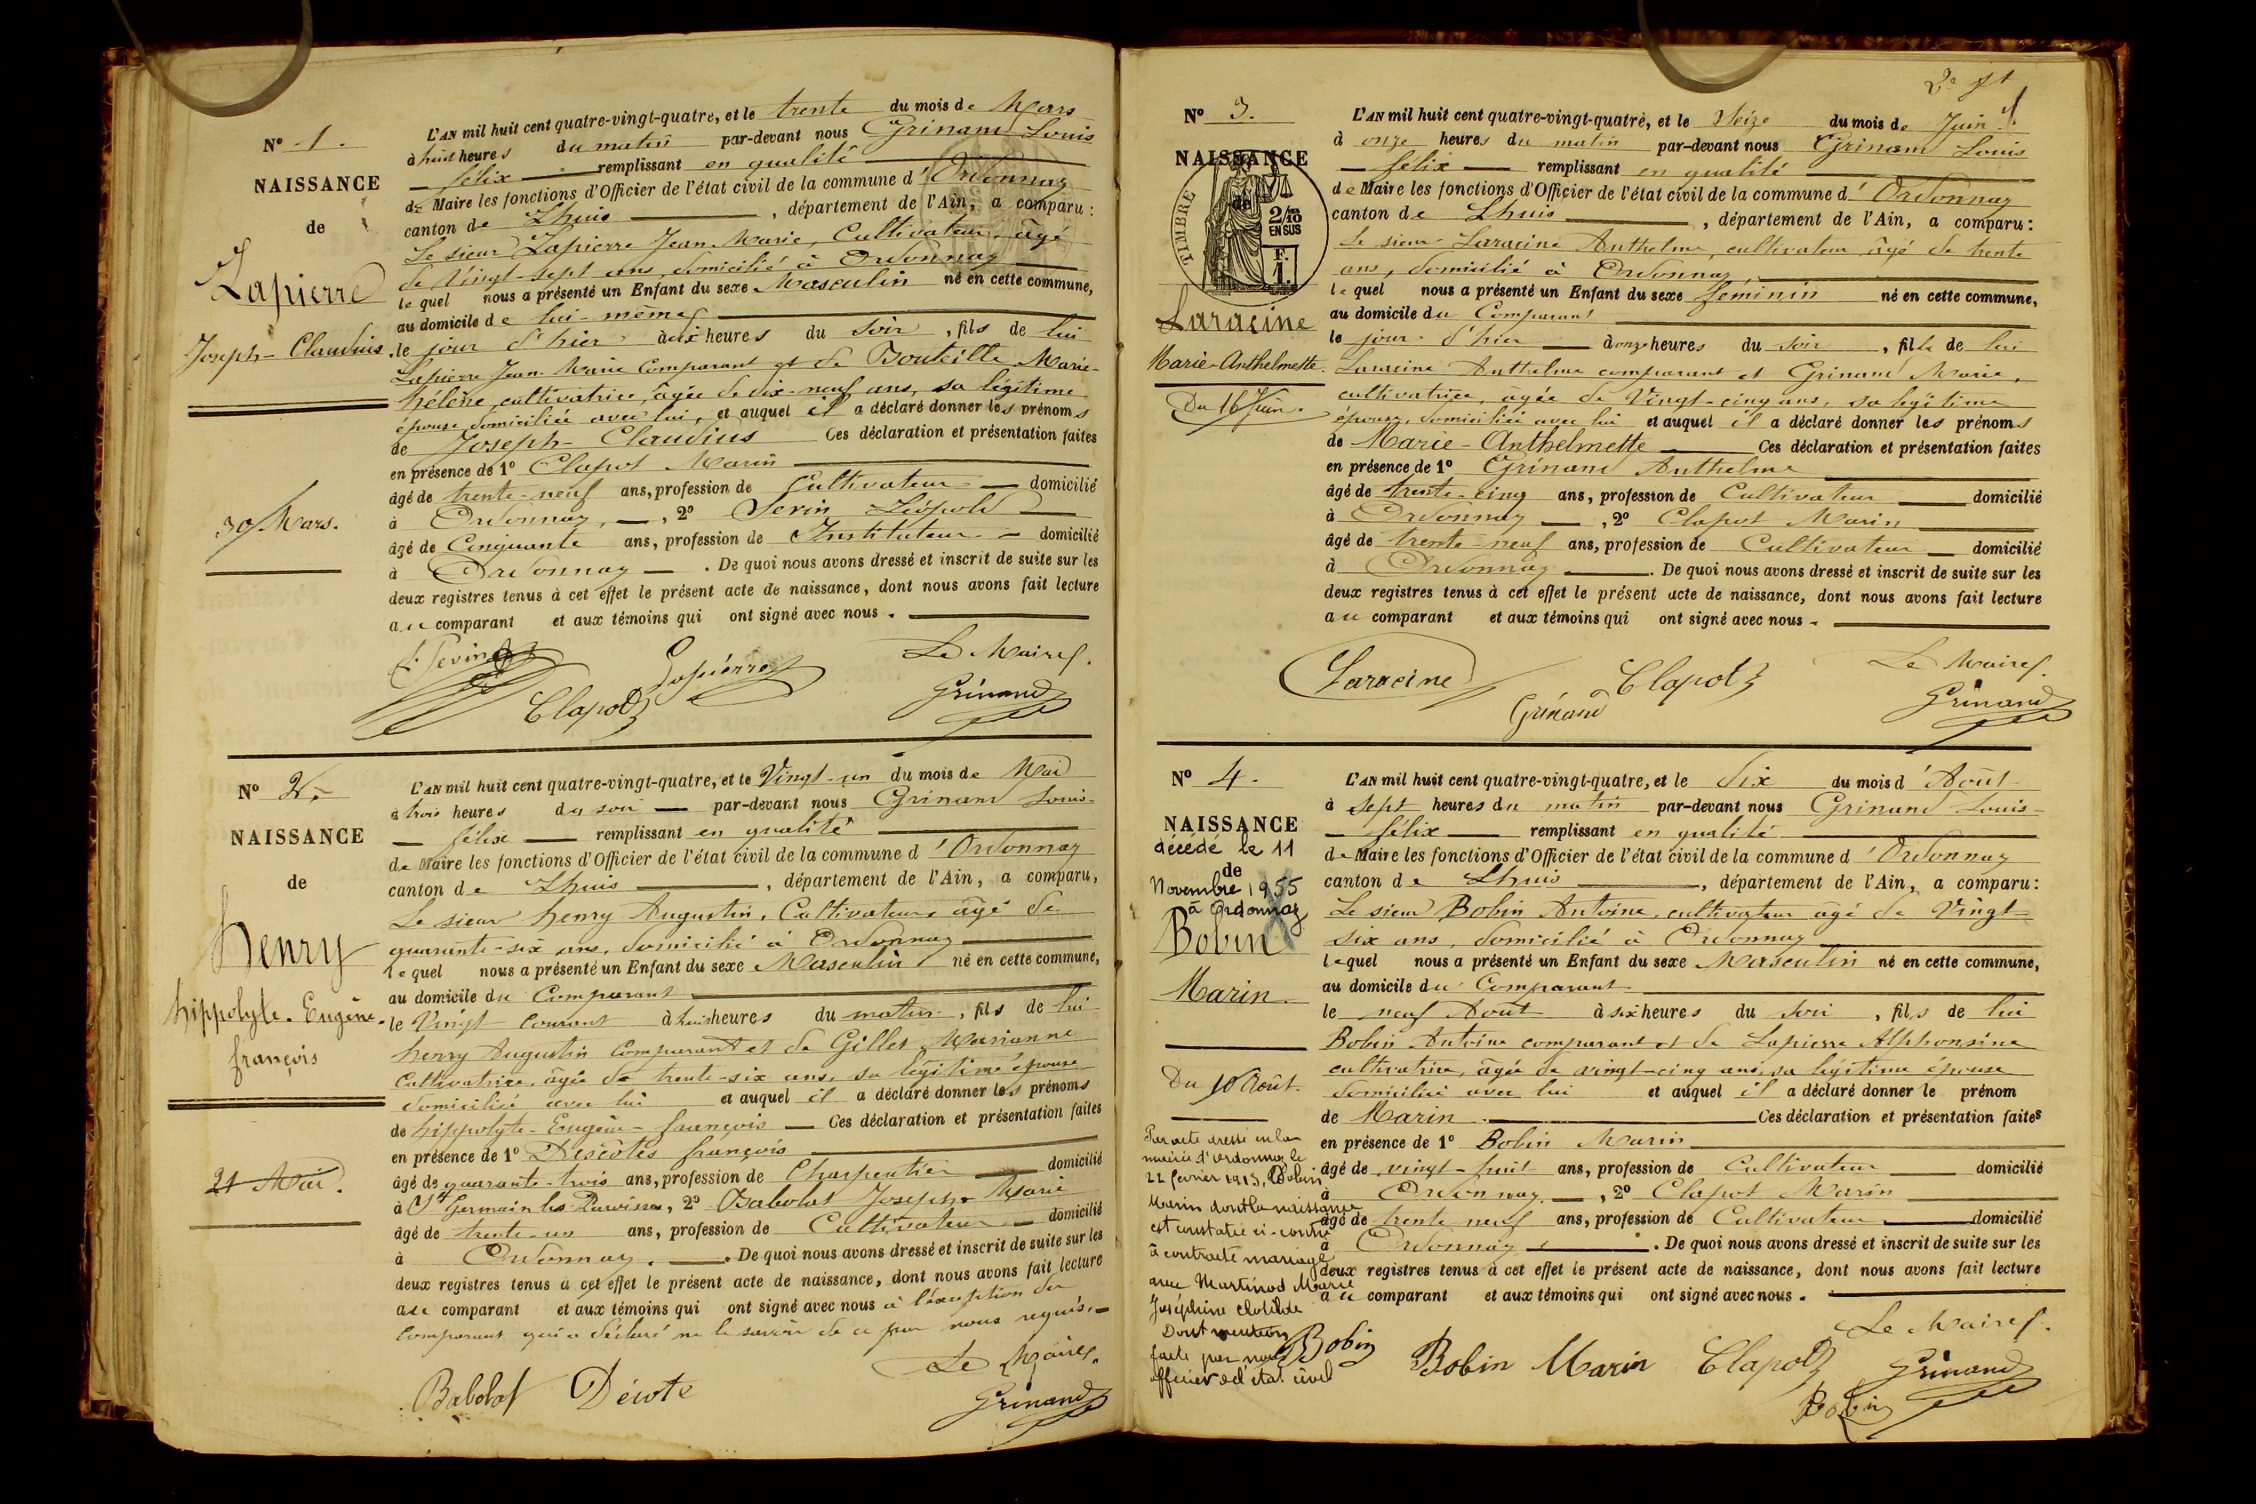 Nº 1.
NAISSANCE
de
Lapierre
Joseph-Claudius.
30 Mars.
L'AN mil huit cent quatre-vingt-quatre, et le trente du mois de Mars
à huit heures du matin par-devant nous Grinand Louis
félix remplissant en qualité
de Maire les fonctions d'Officier de l'état civil de la commune d'Ordonnaz
canton de Lhuis, département de l'Ain, a comparu :
Le sieur Lapierre Jean-Marie, Cultivateur, âgé
de Vingt-sept ans, domicilié à Ordonnaz
lequel nous a présenté un Enfant du sexe Masculin né en cette commune,
au domicile de lui-même
le jour d'hier à dix heures du Soir, fils de lui
Lapierre Jean-Marie Comparant et de Bouteille Marie-
hélène, cultivatrice, âgée de dix-neuf ans, sa légitime
épouse domiciliée avec lui, et auquel il a déclaré donner les prénoms
de Joseph-Claudius Ces déclaration et présentation faites
en présence de 1º Clapot Marin
âgé de trente-neuf ans, profession de Cultivateur domicilié
à Ordonnaz, 2º Serin Léopold
âgé de Cinquante ans, profession de Instituteur domicilié
à Ordonnaz. De quoi nous avons dressé et inscrit de suite sur les
deux registres tenus à cet effet le présent acte de naissance, dont nous avons fait lecture
au comparant et aux témoins qui ont signé avec nous.
Le Maire.
Lapierre
Clapot
Grinand
Nº 2.
NAISSANCE
de
henry
hippolyte-Eugène-
françois
21 Mai.
L'AN mil huit cent quatre-vingt-quatre, et le Vingt-un du mois de Mai
à trois heures du soir par-devant nous Grinand Louis-
félix remplissant en qualité
de Maire les fonctions d'Officier de l'état civil de la commune d'Ordonnaz
canton de Lhuis, département de l'Ain, a comparu,
Le sieur henry Augustin, Cultivateur, âgé de
quarante-six ans, domicilié à Ordonnaz
lequel nous a présenté un Enfant du sexe Masculin né en cette commune,
au domicile du Comparant
le Vingt courant à huit heures du matin, fils de lui
henry Augustin Comparant et de Gillet Marianne
Cultivatrice, âgée de trente-six ans, sa légitime épouse
domiciliée avec lui et auquel il a déclaré donner les prénoms
de hippolyte-Eugène-françois Ces déclaration et présentation faites
en présence de 1º françois
âgé de quarante-trois ans, profession de Charpentier domicilié
à St Germain les Paroisses, 2º Babolat Joseph-Marie
âgé de trente-un ans, profession de Cultivateur domicilié
à Ordonnaz. De quoi nous avons dressé et inscrit de suite sur les
deux registres tenus à cet effet le présent acte de naissance, dont nous avons fait lecture
au comparant et aux témoins qui ont signé avec nous à l'exception du
Comparant qui a déclaré ne le savoir de ce par nous requis.
Le Maire.
Babolat
Grinand
Nº 3.
NAISSANCE
de
TIMBRE
2/10 EN SUS
F. 1.
Laracine
Marie-Anthelmette.
Du 16 Juin.
L'AN mil huit cent quatre-vingt-quatre, et le Seize du mois de Juin
à onze heures du matin par-devant nous Grinand Louis
félix remplissant en qualité
de Maire les fonctions d'Officier de l'état civil de la commune d'Ordonnaz
canton de Lhuis, département de l'Ain, a comparu :
Le sieur Laracine Anthelme, cultivateur âgé de trente
ans, domicilié à Ordonnaz
lequel nous a présenté un Enfant du sexe féminin né en cette commune,
au domicile du Comparant
le jour d'hier à onze heures du soir, fille de lui
Laracine Anthelme comparant et Grinand Marie,
cultivatrice, âgée de Vingt-cinq ans, sa légitime
épouse, domiciliée avec lui et auquel il a déclaré donner les prénoms
de Marie-Anthelmette Ces déclaration et présentation faites
en présence de 1º Grinand Anthelme
âgé de trente-cinq ans, profession de Cultivateur domicilié
à Ordonnaz, 2º Clapot Marin
âgé de trente-neuf ans, profession de Cultivateur domicilié
à Ordonnaz. De quoi nous avons dressé et inscrit de suite sur les
deux registres tenus à cet effet le présent acte de naissance, dont nous avons fait lecture
au comparant et aux témoins qui ont signé avec nous.
Le Maire.
Laracine
Grinand
Clapot
Grinand
Nº 4.
NAISSANCE
décédé le 11
de
Novembre 1955
à Ordonnaz
Bobin
Marin
Du 10 Août.
Par acte dressé en la
mairie d'ordonnaz le
22 février 1913, Bobin
Marin dont la naissance
est constatée ci-contre
à contracté mariage
avec Martinod Marie
Joséphine Clotilde
Dont mention
faite par nous
officier de l'état civil
Bobin
L'AN mil huit cent quatre-vingt-quatre, et le dix du mois d'Août
à sept heures du matin par-devant nous Grinand Louis-
félix remplissant en qualité
de Maire les fonctions d'Officier de l'état civil de la commune d'Ordonnaz
canton de Lhuis, département de l'Ain, a comparu :
Le sieur Bobin Antoine, cultivateur âgé de Vingt-
six ans, domicilié à Ordonnaz
lequel nous a présenté un Enfant du sexe Masculin né en cette commune,
au domicile du Comparant
le neuf Août à six heures du soir, fils de lui
Bobin Antoine comparant et de Lapierre Alphonsine
cultivatrice, âgée de vingt-cinq ans, sa légitime épouse
domiciliée avec lui et auquel il a déclaré donner le prénom
de Marin. Ces déclaration et présentation faites
en présence de 1º Bobin Marin
âgé de vingt-huit ans, profession de Cultivateur domicilié
à Ordonnaz, 2º Clapot Marin
âgé de trente neuf ans, profession de Cultivateur domicilié
à Ordonnaz. De quoi nous avons dressé et inscrit de suite sur les
deux registres tenus à cet effet le présent acte de naissance, dont nous avons fait lecture
au comparant et aux témoins qui ont signé avec nous.
Le Maire.
Bobin Marin
Clapot
Grinand
Bobin